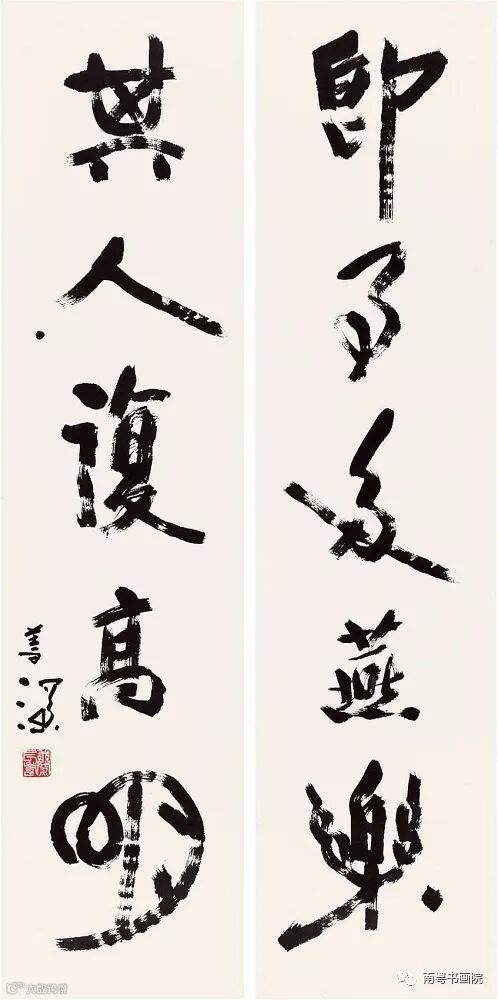 即事多燕樂
其人復高明
南粤书画院